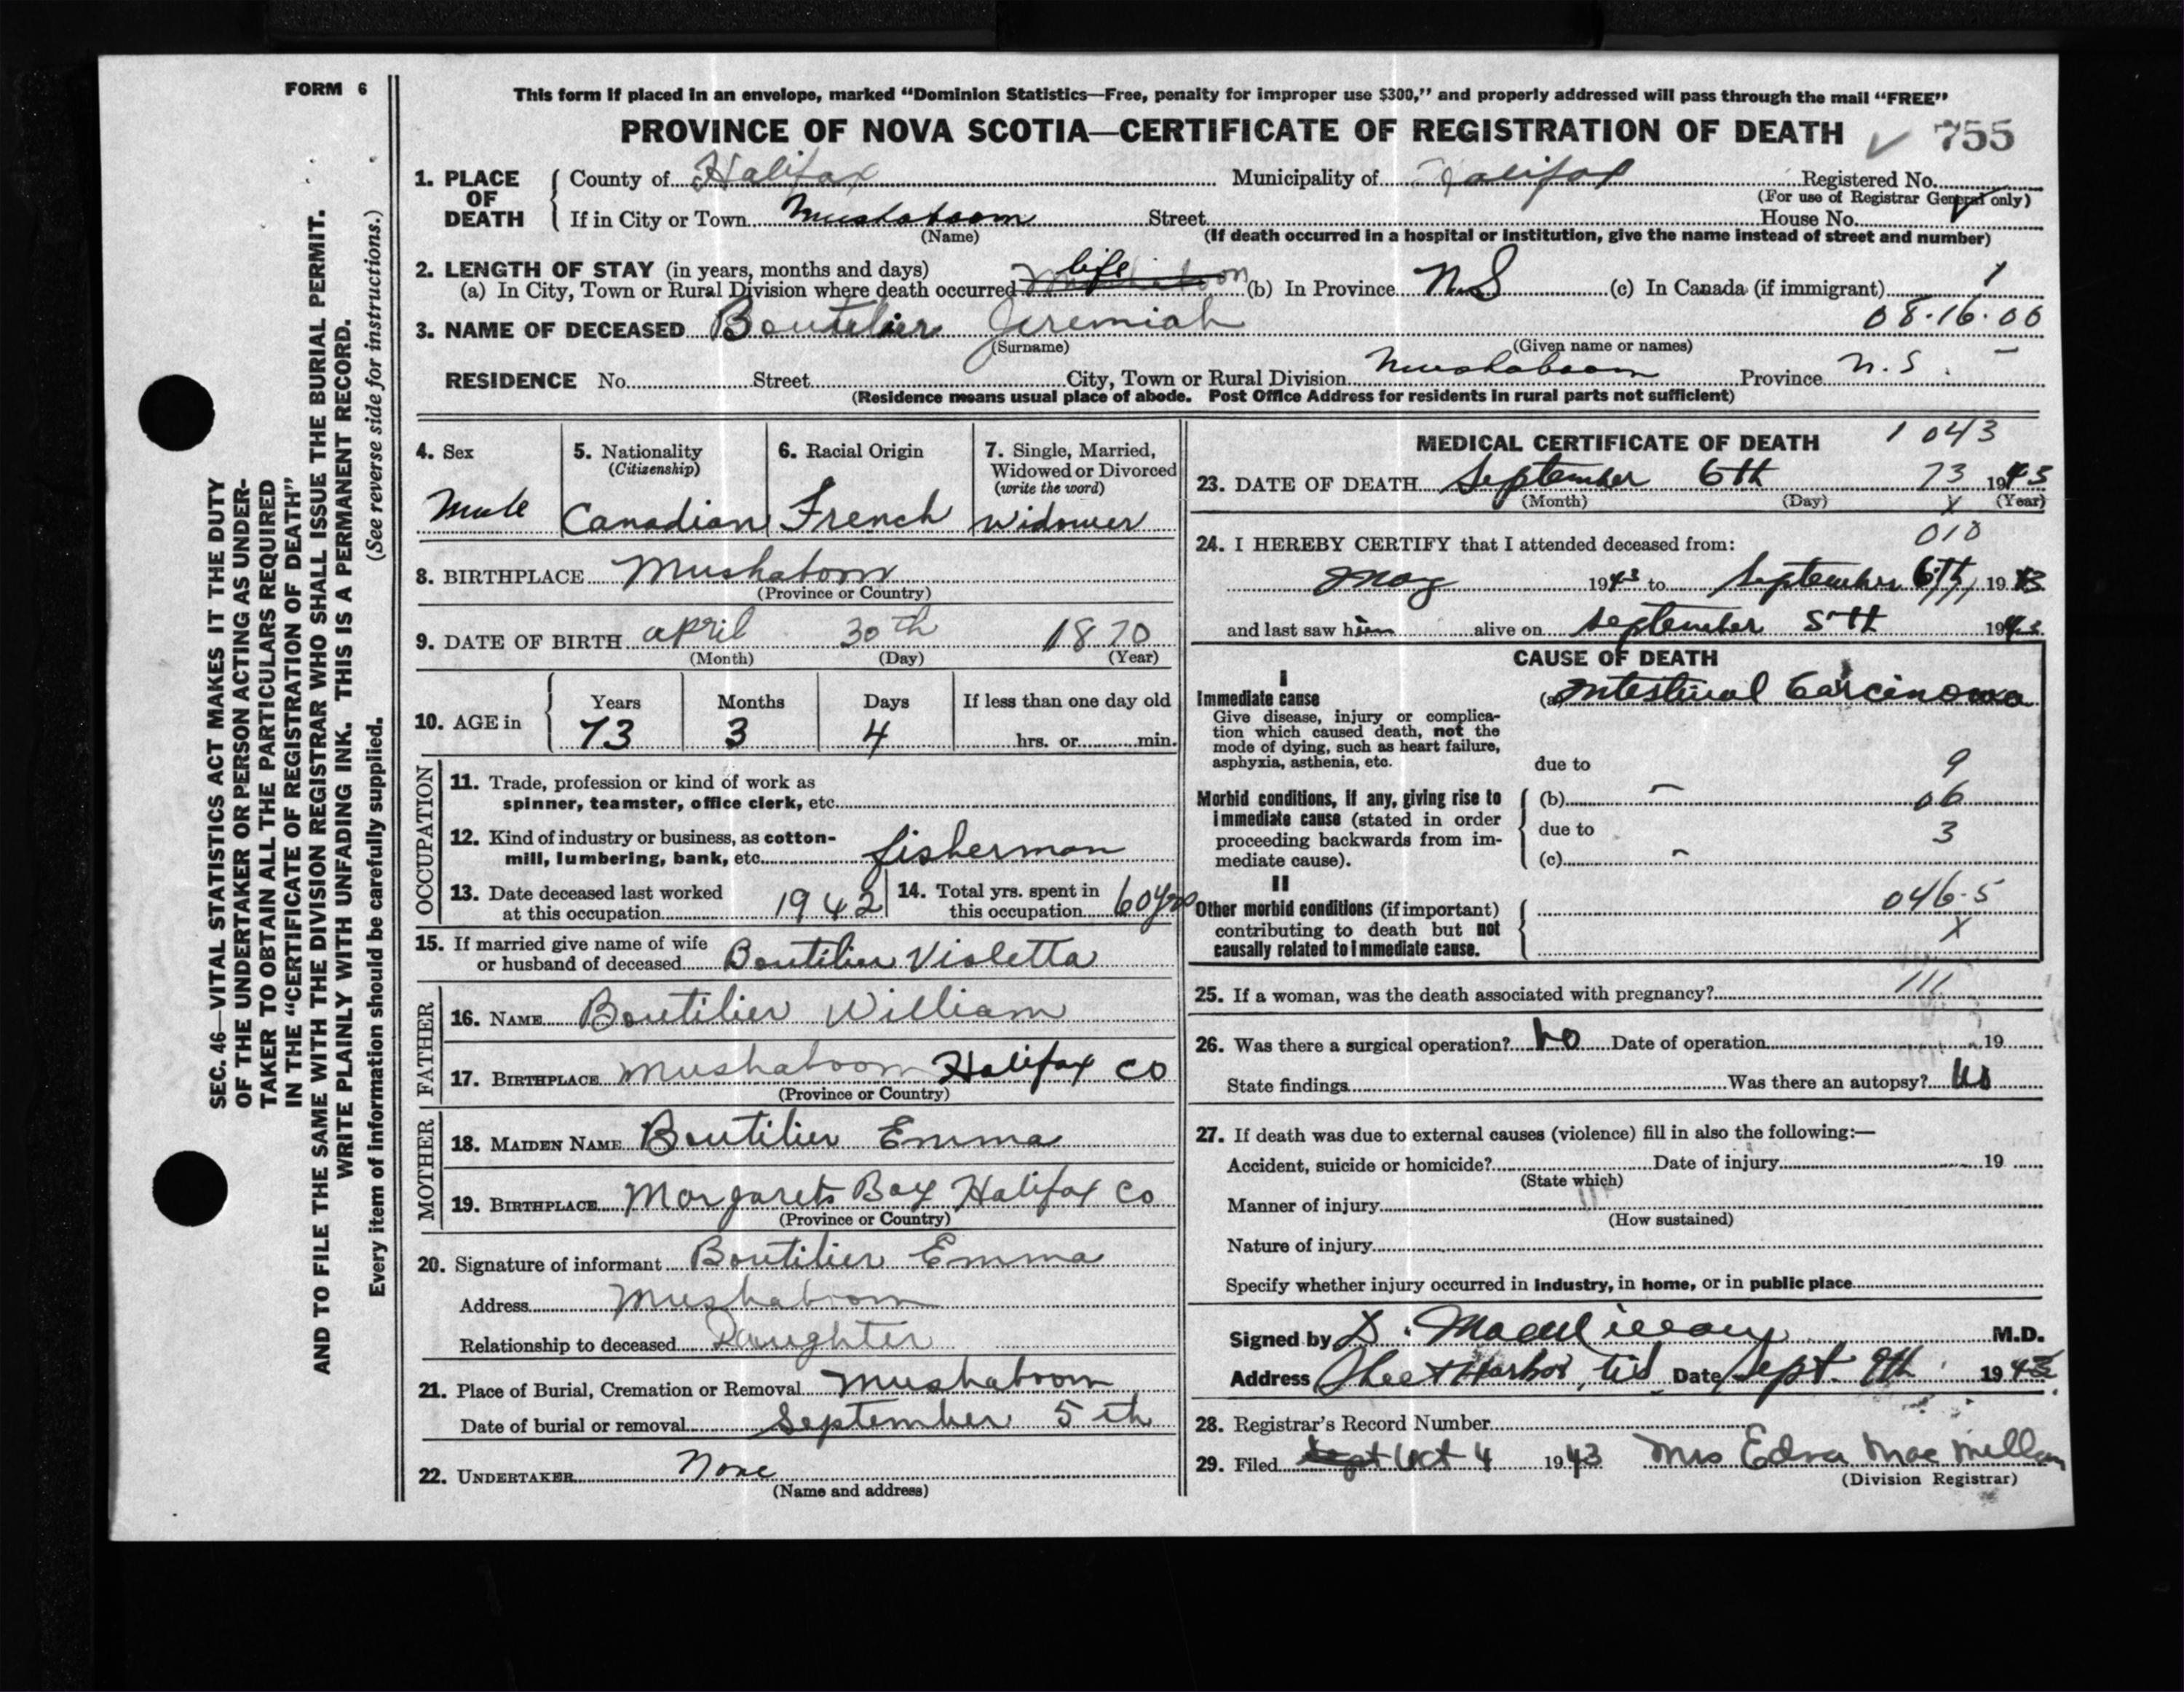 FORM 6
This form if placed in an envelope, marked “Dominion Statistics—Free, penalty for improper use $300,” and properly addressed will pass through the mail “FREE”
PROVINCE OF NOVA SCOTIA—CERTIFICATE OF REGISTRATION OF DEATH 755
1. PLACE OF DEATH County of Halifax Municipality of Halifax Registered No.
(For use of Registrar General only)
If in City or Town Mushaboom Street House No.
(Name) (If death occurred in a hospital or institution, give the name instead of street and number)
2. LENGTH OF STAY (in years, months and days)
(a) In City, Town or Rural Division where death occurred life (b) In Province N.S (c) In Canada (if immigrant) 1
08.16.00
3. NAME OF DECEASED Boutilier Jeremiah
(Surname) (Given name or names)
RESIDENCE No. Street City, Town or Rural Division Mushaboom Province N.S.
(Residence means usual place of abode. Post Office Address for residents in rural parts not sufficient)
4. Sex Male
5. Nationality (Citizenship) Canadian
6. Racial Origin French
7. Single, Married, Widowed or Divorced (write the word) Widower
8. BIRTHPLACE Mushaboom
(Province or Country)
9. DATE OF BIRTH April 30th 1870
(Month) (Day) (Year)
10. AGE in Years 73 Months 3 Days 4 If less than one day old hrs. or min.
OCCUPATION
11. Trade, profession or kind of work as
spinner, teamster, office clerk, etc.
12. Kind of industry or business, as cotton-
mill, lumbering, bank, etc. fisherman
13. Date deceased last worked at this occupation 1942
14. Total yrs. spent in this occupation 60 yrs
15. If married give name of wife
or husband of deceased Boutilier Violetta
FATHER
16. NAME Boutilier William
17. BIRTHPLACE Mushaboom Halifax Co
(Province or Country)
MOTHER
18. MAIDEN NAME Boutilier Emma
19. BIRTHPLACE Margarets Bay Halifax Co
(Province or Country)
20. Signature of informant Boutilier Emma
Address Mushaboom
Relationship to deceased Daughter
21. Place of Burial, Cremation or Removal Mushaboom
Date of burial or removal September 5th
22. UNDERTAKER None
(Name and address)
MEDICAL CERTIFICATE OF DEATH 1 043
23. DATE OF DEATH September 6th 73 1943
(Month) (Day) X (Year)
010
24. I HEREBY CERTIFY that I attended deceased from:
May 1943 to September 6th 1943
and last saw him alive on September 5th 1943
CAUSE OF DEATH
I
Immediate cause (a) Intestinal Carcinoma
Give disease, injury or complica-
tion which caused death, not the
mode of dying, such as heart failure,
asphyxia, asthenia, etc. due to 9
Morbid conditions, if any, giving rise to (b) 06
immediate cause (stated in order
proceeding backwards from im- due to 3
mediate cause). (c)
II
Other morbid conditions (if important) 046.5
contributing to death but not X
causally related to immediate cause.
25. If a woman, was the death associated with pregnancy? 111
26. Was there a surgical operation? No Date of operation 19
State findings Was there an autopsy? No
27. If death was due to external causes (violence) fill in also the following:—
Accident, suicide or homicide? Date of injury 19
(State which)
Manner of injury
(How sustained)
Nature of injury
Specify whether injury occurred in industry, in home, or in public place
Signed by D. M.D.
Address Sheet Harbor, Date Sept. 9th 1943
28. Registrar’s Record Number
29. Filed Oct 4 1943 Mrs Edna MacMillan
(Division Registrar)
SEC. 46—VITAL STATISTICS ACT MAKES IT THE DUTY
OF THE UNDERTAKER OR PERSON ACTING AS UNDER-
TAKER TO OBTAIN ALL THE PARTICULARS REQUIRED
IN THE “CERTIFICATE OF REGISTRATION OF DEATH”
AND TO FILE THE SAME WITH THE DIVISION REGISTRAR WHO SHALL ISSUE THE BURIAL PERMIT.
WRITE PLAINLY WITH UNFADING INK. THIS IS A PERMANENT RECORD.
Every item of information should be carefully supplied. (See reverse side for instructions.)